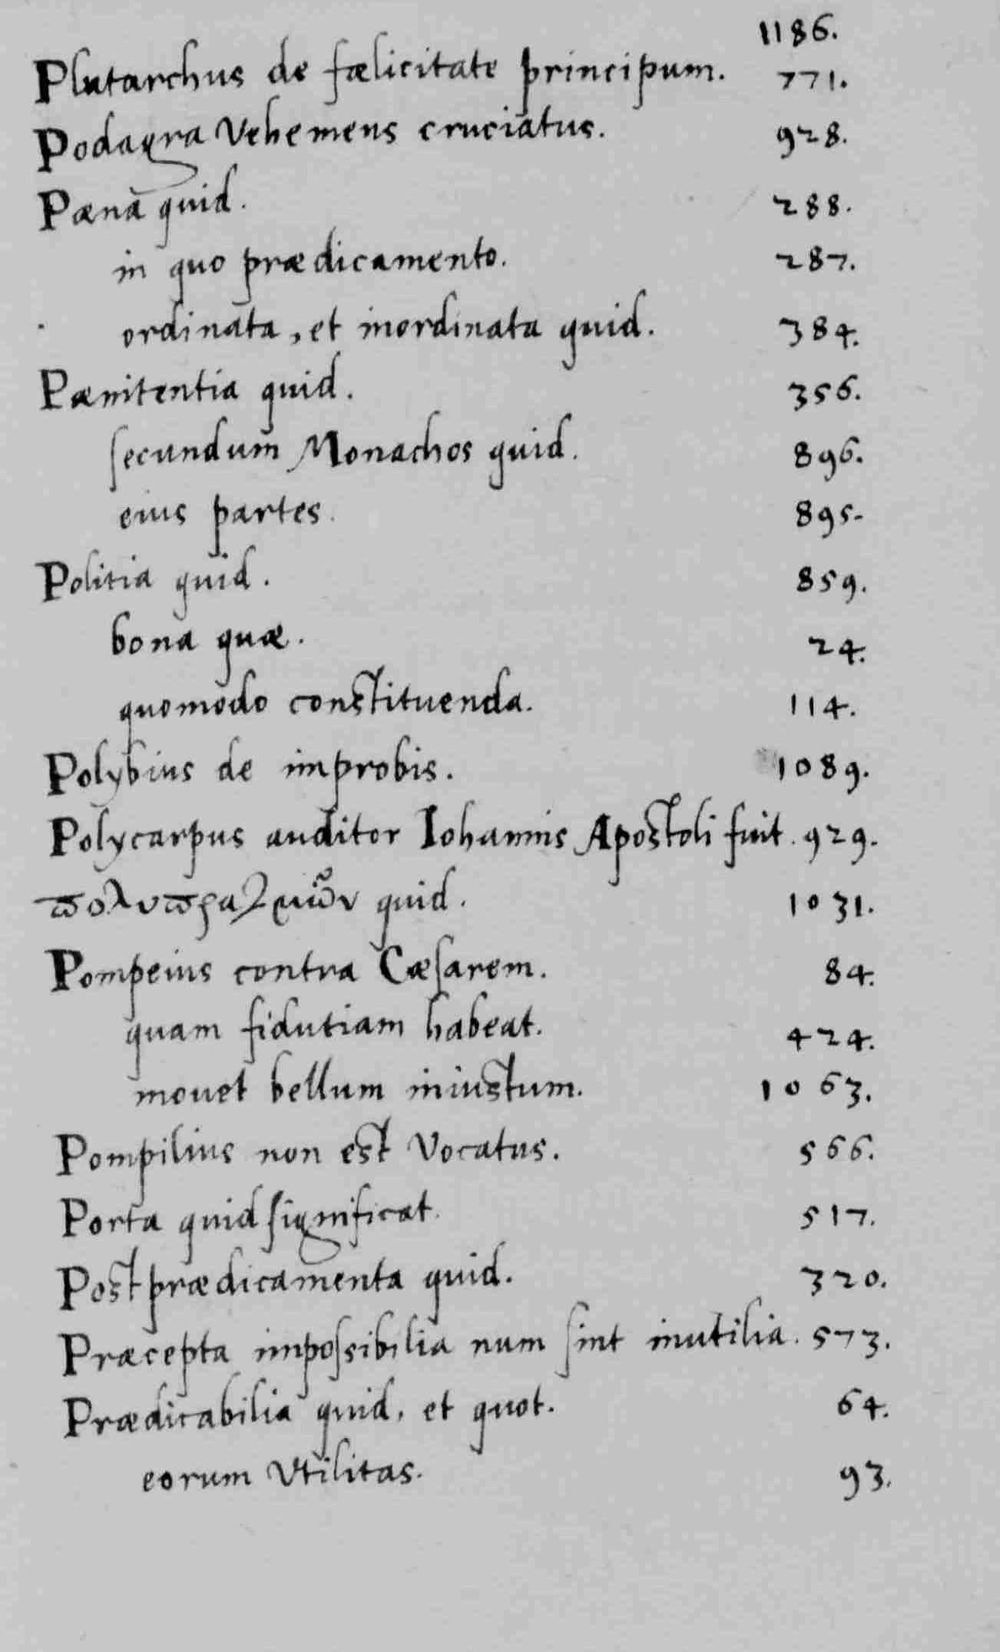 1186.
Plutarchus de fælicitate principum. 771.
Podagra Vehemens cruciatus. 928.
Pæna quid. 288.
in quo prædicamento. 287.
ordinata, et inordinata quid. 384.
Pænitentia quid. 356.
secundum Monachos quid. 896.
eius partes. 895.
Politia quid. 859.
bona quæ. 24.
quomodo constituenda. 114.
Polybius de improbis. 1089.
Polycarpus auditor Iohannis Apostoli fuit. 929.
quid. 1031.
Pompeius contra Cæsarem. 84.
quam fidutiam habeat. 424.
mouet bellum iniustum. 1063.
Pompilius non est Vocatus. 566.
Porta quid significat. 517.
Postprædicamenta quid. 320.
Præcepta impossibilia num sint inutilia. 573.
Prædicabilia quid, et quot. 64.
eorum Vtilitas. 93.